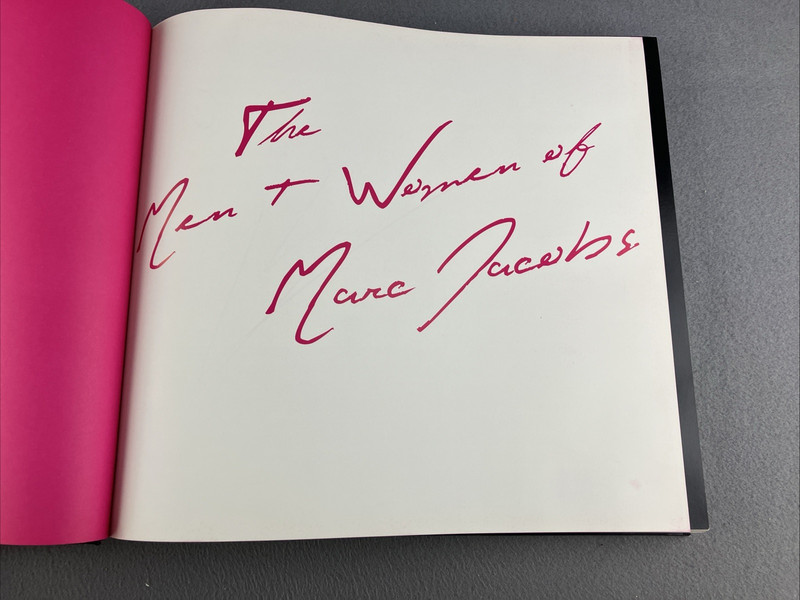 The
Men + Women of
Marc Jacobs